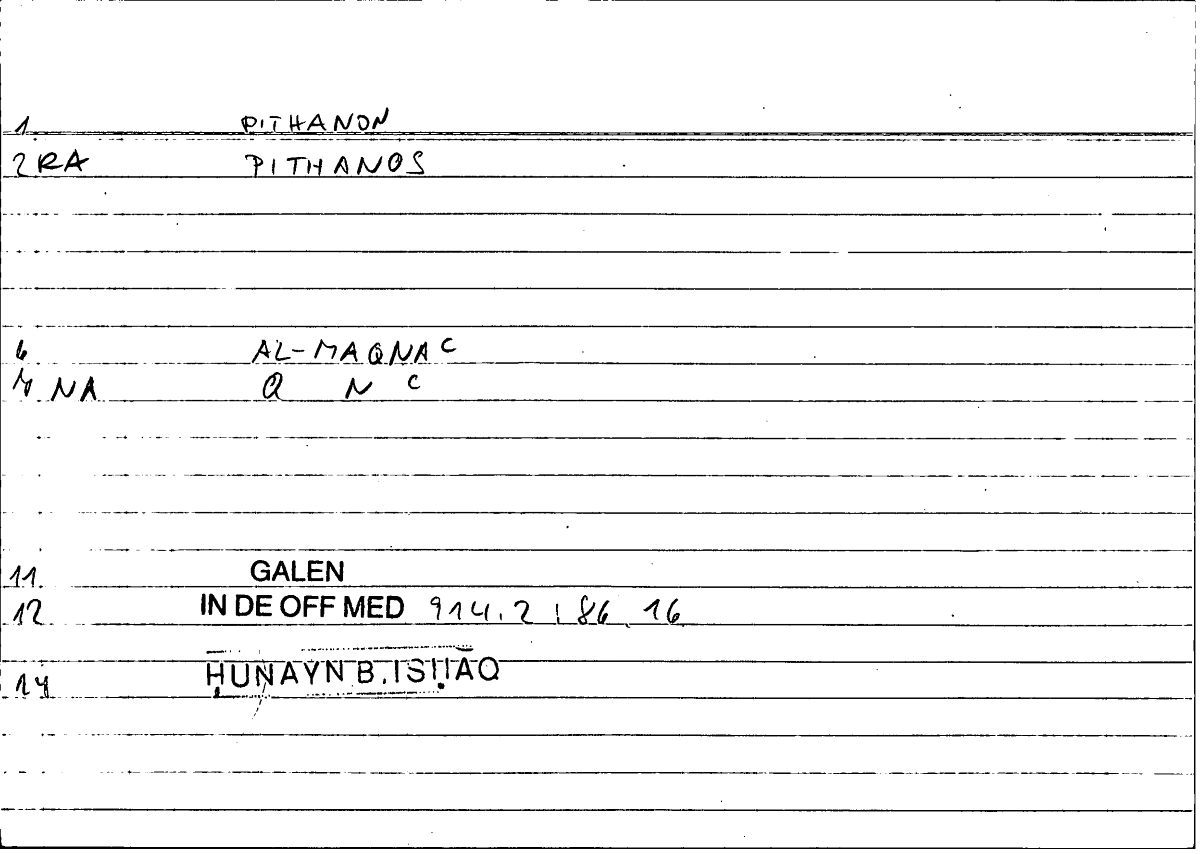 1 PITHANON
2 RA PITHANOS
6 AL-MAQNA C
7 NA Q N C
11. GALEN
12 IN DE OFF MED 914.2 | 86.16
14 ḤUNAYN B. ISḤĀQ